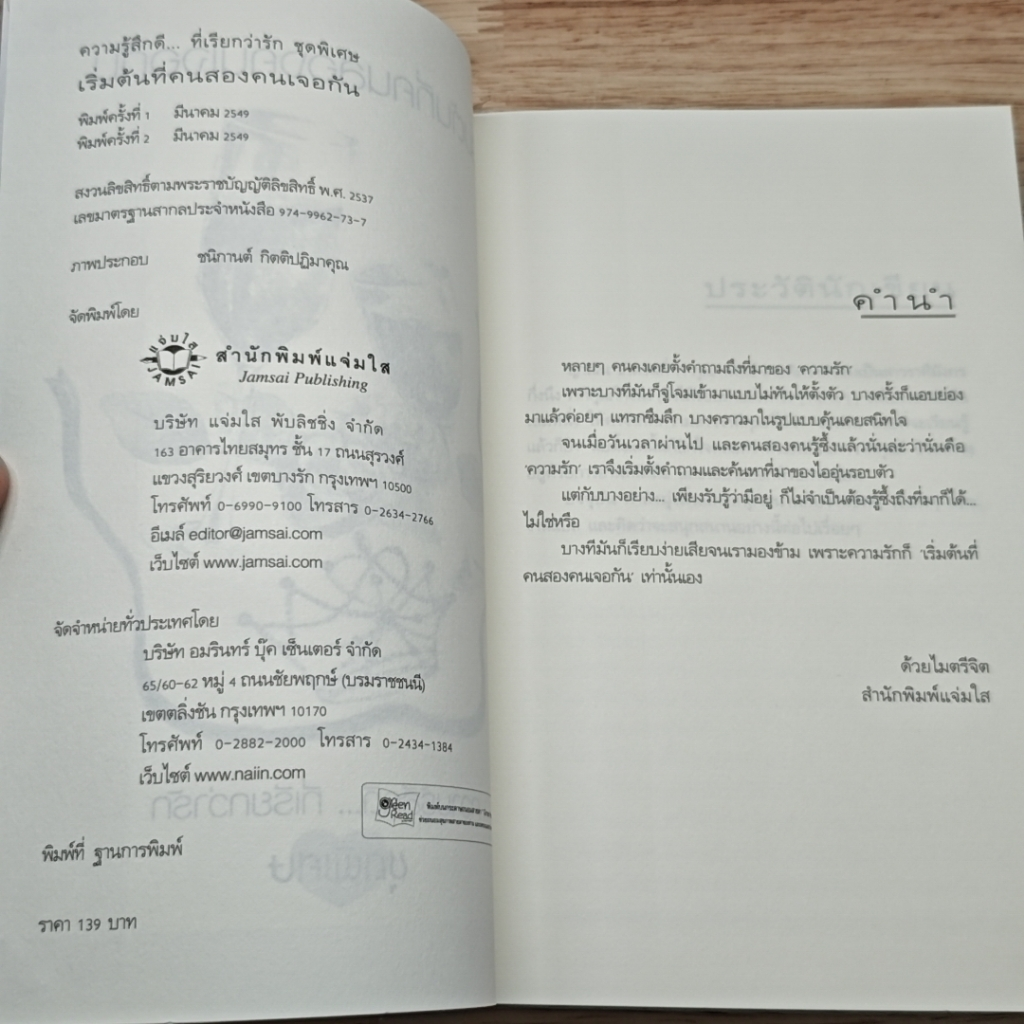 ความรู้สึกดี... ที่เรียกว่ารัก ชุดพิเศษ
เริ่มต้นที่คนสองคนเจอกัน
พิมพ์ครั้งที่ 1 มีนาคม 2549
พิมพ์ครั้งที่ 2 มีนาคม 2549
สงวนลิขสิทธิ์ตามพระราชบัญญัติลิขสิทธิ์ พ.ศ. 2537
เลขมาตรฐานสากลประจำหนังสือ 974-9962-73-7
ภาพประกอบ ชนิกานต์ กิตติปฏิมาคุณ
จัดพิมพ์โดย
แจ่มใส
JAMSAI
สำนักพิมพ์แจ่มใส
Jamsai Publishing
บริษัท แจ่มใส พับลิชชิ่ง จำกัด
163 อาคารไทยสมุทร ชั้น 17 ถนนสุรวงศ์
แขวงสุริยวงศ์ เขตบางรัก กรุงเทพฯ 10500
โทรศัพท์ 0-6990-9100 โทรสาร 0-2634-2766
อีเมล์ editor@jamsai.com
เว็บไซต์ www.jamsai.com
จัดจำหน่ายทั่วประเทศโดย
บริษัท อมรินทร์ บุ๊ค เซ็นเตอร์ จำกัด
65/60-62 หมู่ 4 ถนนชัยพฤกษ์ (บรมราชชนนี)
เขตตลิ่งชัน กรุงเทพฯ 10170
โทรศัพท์ 0-2882-2000 โทรสาร 0-2434-1384
เว็บไซต์ www.naiin.com
Green
Read
พิมพ์ที่ ฐานการพิมพ์
ราคา 139 บาท
คำนำ
หลายๆ คนคงเคยตั้งคำถามถึงที่มาของ 'ความรัก'
เพราะบางทีมันก็จู่โจมเข้ามาแบบไม่ทันให้ตั้งตัว บางครั้งก็แอบย่อง
มาแล้วค่อยๆ แทรกซึมลึก บางคราวมาในรูปแบบคุ้นเคยสนิทใจ
จนเมื่อวันเวลาผ่านไป และคนสองคนรู้ซึ้งแล้วนั่นล่ะว่านั่นคือ
'ความรัก' เราจึงเริ่มตั้งคำถามและค้นหาที่มาของไออุ่นรอบตัว
แต่กับบางอย่าง... เพียงรับรู้ว่ามีอยู่ ก็ไม่จำเป็นต้องรู้ซึ้งถึงที่มาก็ได้...
ไม่ใช่หรือ
บางทีมันก็เรียบง่ายเสียจนเรามองข้าม เพราะความรักก็ 'เริ่มต้นที่
คนสองคนเจอกัน' เท่านั้นเอง
ด้วยไมตรีจิต
สำนักพิมพ์แจ่มใส